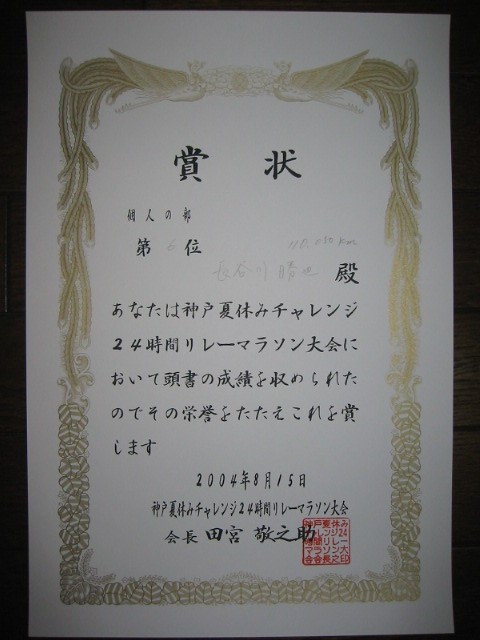 賞状
個人の部
第6位
長谷川 勝也 殿
あなたは神戸夏休みチャレンジ
24時間リレーマラソン大会に
おいて頭書の成績を収められた
のでその栄誉をたたえこれを賞
します
2004年8月15日
神戸夏休みチャレンジ24時間リレーマラソン大会
会長 田宮 敬之助
神戸夏休み
チャレンジ24
時間リレー
マラソン大
会会長之印